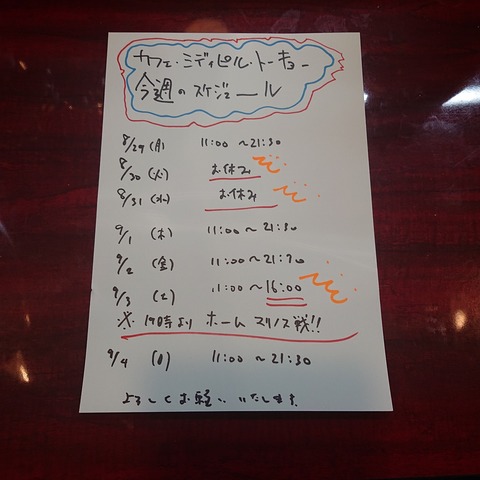 カフェ・ミディピル・トーキョー
今週のスケジュール
8/29 (月) 11:00〜21:30
8/30 (火) お休み
8/31 (水) お休み
9/1 (木) 11:00〜21:30
9/2 (金) 11:00〜21:30
9/3 (土) 11:00〜16:00
※ 19時より ホーム マリノス戦!!
9/4 (日) 11:00〜21:30
よろしくお願いいたします